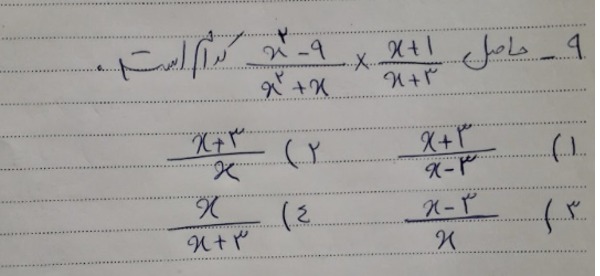 ۹ـ حاصل (x+۱)/(x+۳) × (x^۲-۹)/(x^۲+x) کدام است.
۱) (x+۳)/(x-۳) ۲) (x+۳)/x
۳) (x-۳)/x ٤) x/(x+۳)